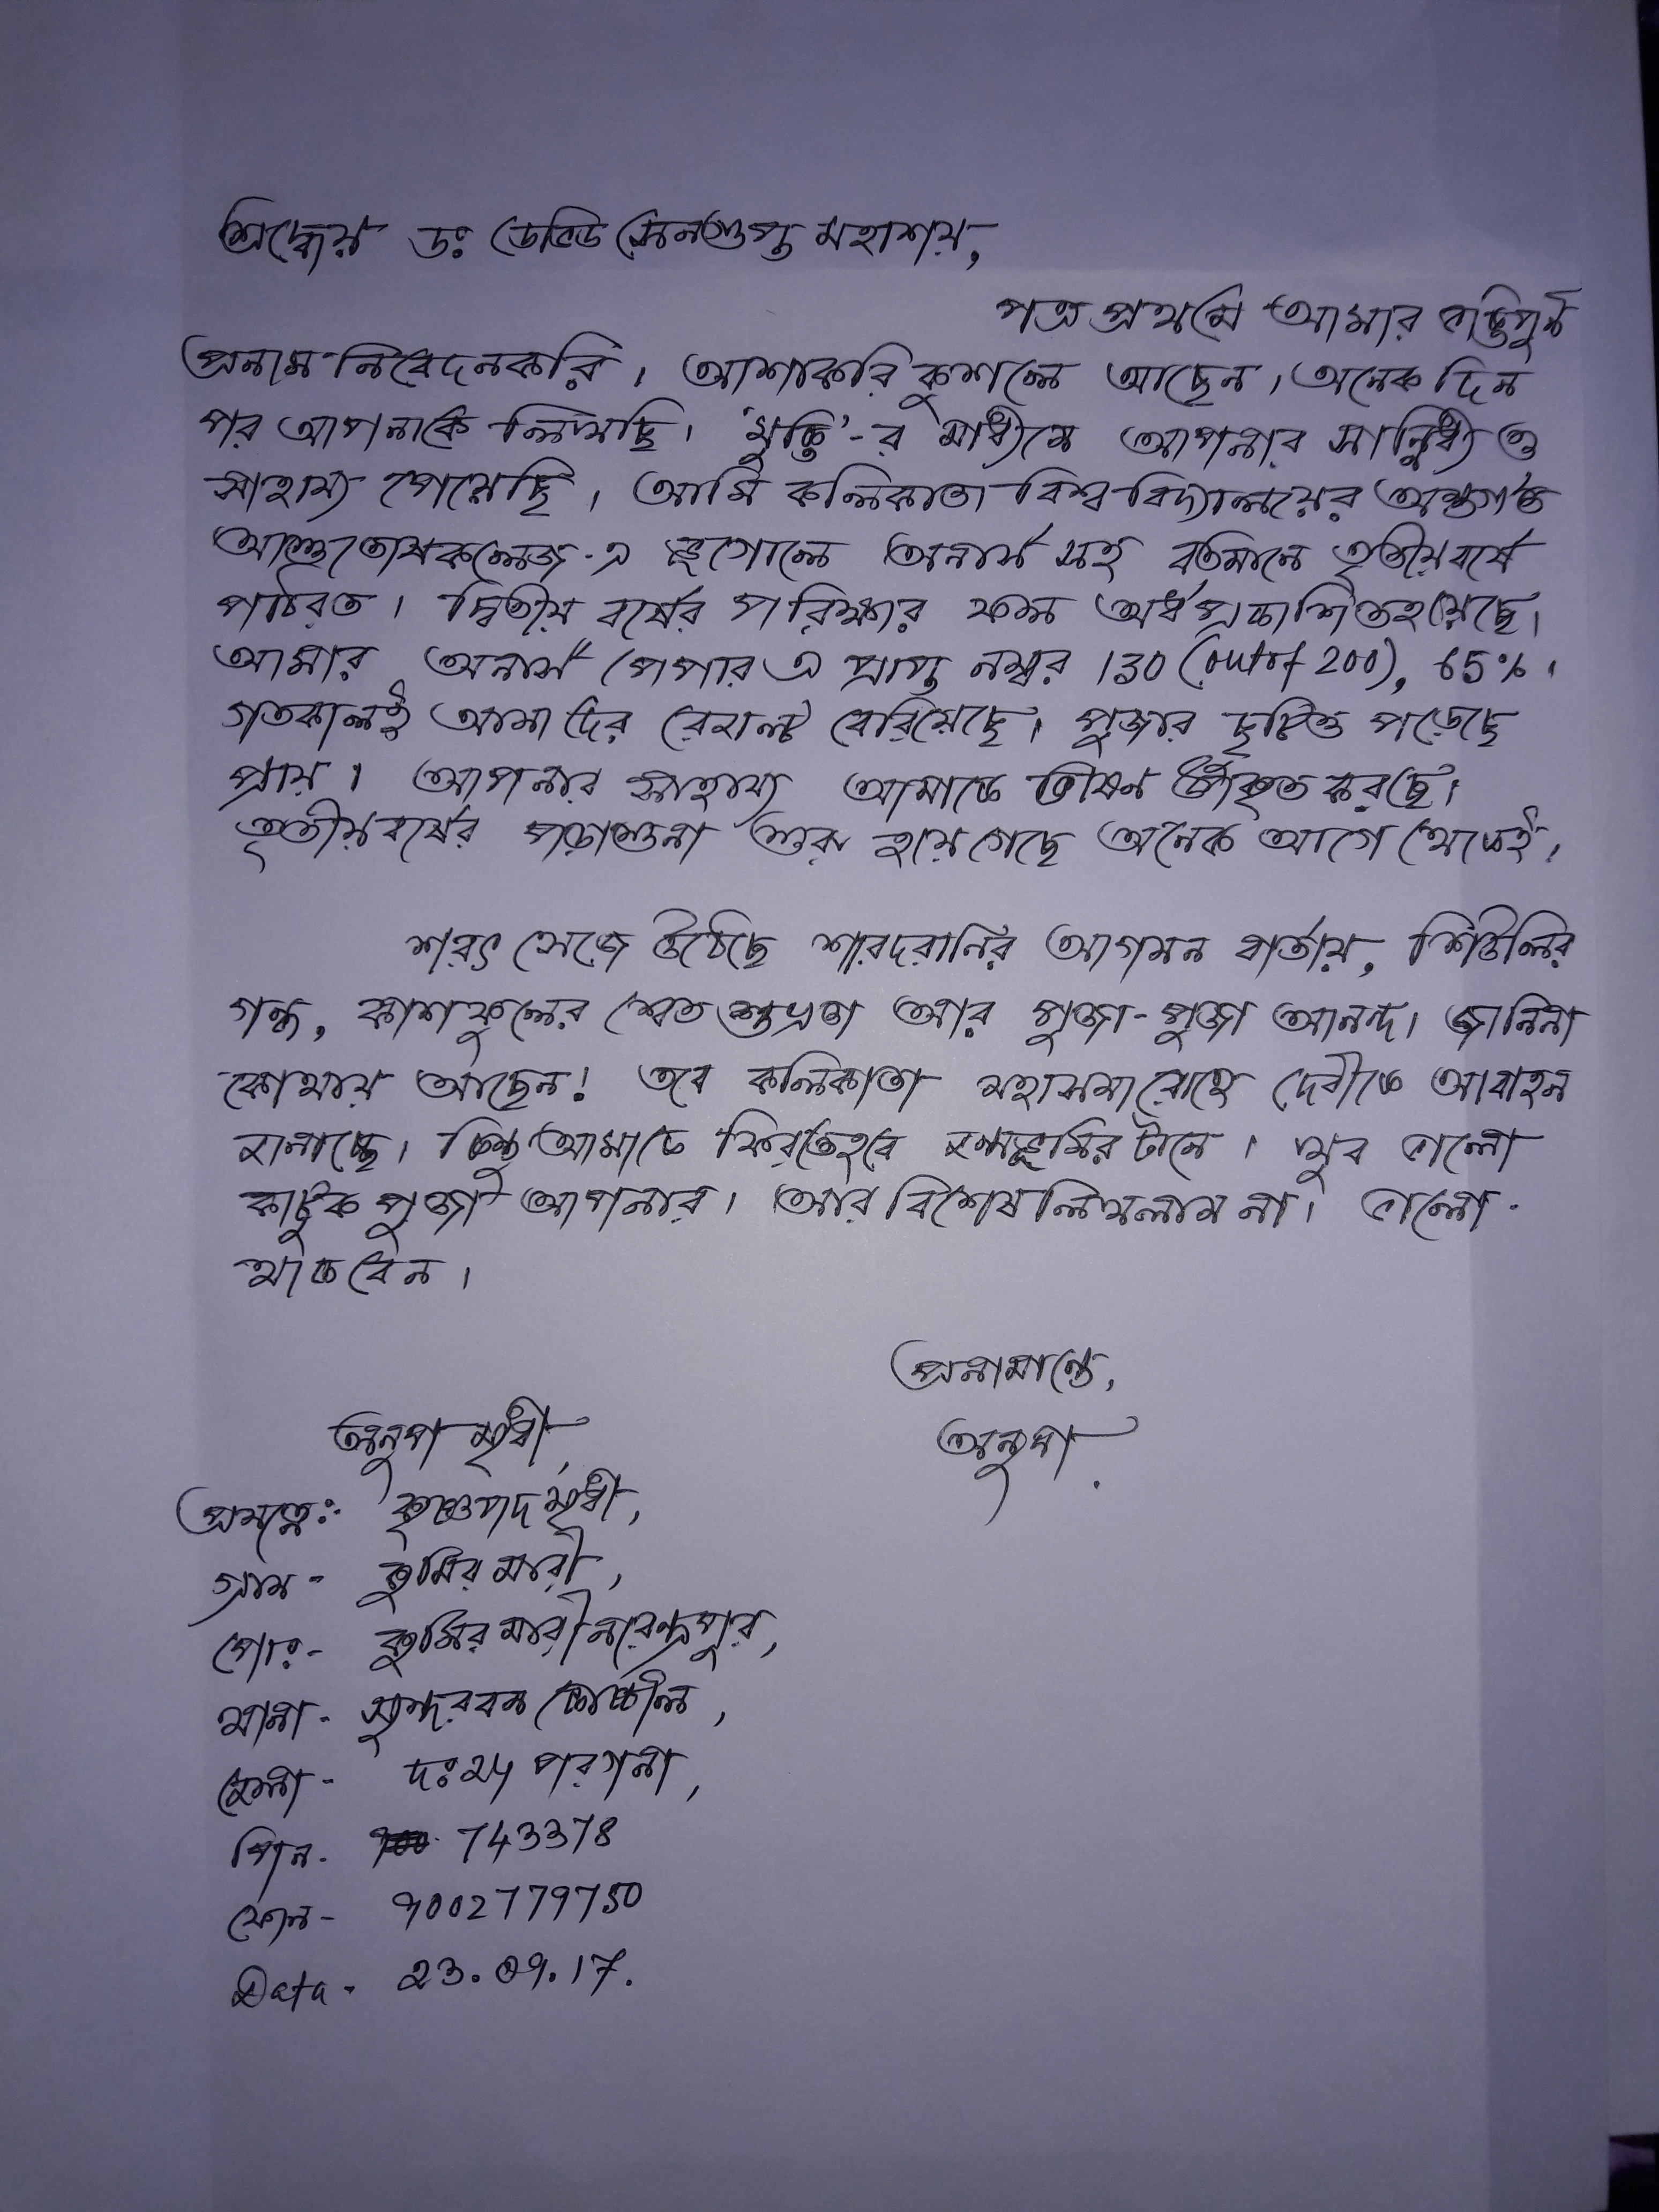 শ্রদ্ধেয় ডঃ ডেভিড সেনগুপ্ত মহাশয়,
পত্র প্রথমে আমার ভক্তিপূর্ন
প্রনাম নিবেদন করি। আশাকরি কুশলে আছেন। অনেক দিন
পর আপনাকে লিখছি। 'মুক্তি'-র মাধ্যমে আপনার সান্নিধ্য ও
সাহায্য পেয়েছি। আমি কলিকাতা বিশ্ববিদ্যালয়ের অন্তর্গত
আশুতোষ কলেজ-এ ভূগোলে অনার্স সহ বর্তমানে তৃতীয় বর্ষে
পাঠরত। দ্বিতীয় বর্ষের পরিক্ষার ফল অর্ধপ্রকাশিত হয়েছে।
আমার অনার্স পেপার এ প্রাপ্ত নম্বর 130 (out of 200), 65%।
গতকালই আমাদের রেজাল্ট বেরিয়েছে। পুজার ছুটিও পড়েছে
প্রায়। আপনার সাহায্য আমাকে ভীষন উপকৃত করছে।
তৃতীয় বর্ষের পড়াশুনা শুরু হয়ে গেছে অনেক আগে থেকেই।
শরৎ সেজে উঠেছে শারদরানির আগমন বার্তায়, শিউলির
গন্ধ, কাশফুলের শ্বেত শুভ্রতা আর পুজা-পুজা আনন্দ। জানিনা
কোথায় আছেন! তবে কলিকাতা মহাসমারোহে দেবীকে আবাহন
জানাচ্ছে। কিন্তু আমাকে ফিরতে হবে জন্মভূমির টানে। খুব ভালো
কাটুক পুজা আপনার। আর বিশেষ লিখলাম না। ভালো
থাকবেন।
প্রনামান্তে,
অনুপা মৃধা, অনুপা.
প্রযত্নেঃ- কৃষ্ণপদ মৃধা,
গ্রাম - কুমিরমারী,
পোঃ- কুমিরমারী নরেন্দ্রপুর,
থানা - সুন্দরবন কোস্টাল,
জেলা - দঃ ২৪ পরগনা,
পিন - 743378
ফোন - 9002779750
Data - 23.09.17.